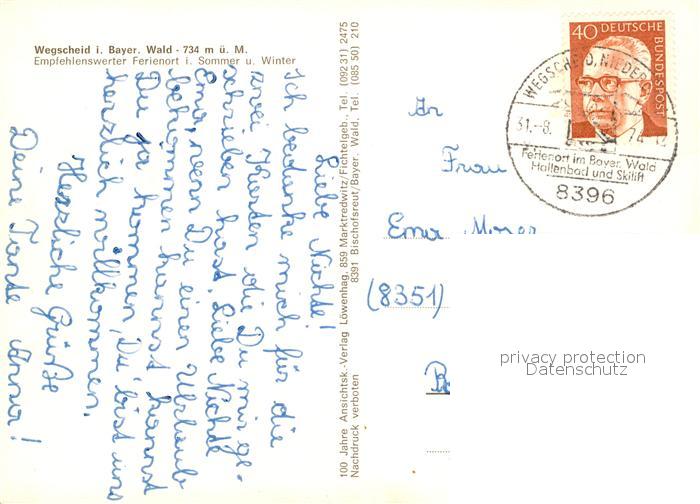 Wegscheid i. Bayer. Wald - 734 m ü. M.
Empfehlenswerter Ferienort i. Sommer u. Winter
Liebe Nichte!
Ich bedanke mich für die
zwei Karten die Du mir ge-
schrieben hast. Liebe Nichte
Erna, wenn Du einen Urlaub
bekommen kannst, kannst
Du ja kommen, Du bist uns
herzlich willkommen.
Herzliche Grüße
Deine Tante Anna!
100 Jahre Ansichtsk.-Verlag Löwenhag, 859 Marktredwitz/Fichtelgeb., Tel. (092 31) 2475
8391 Bischofsreut/Bayer. Wald, Tel. (085 50) 210
Nachdruck verboten
40 DEUTSCHE
BUNDESPOST
WEGSCHEID, NIEDER
31.-8. 74-12
Ferienort im Bayer. Wald
Hallenbad und Skilift
8396
An
Frau
Erna
(8351)
privacy protection
Datenschutz